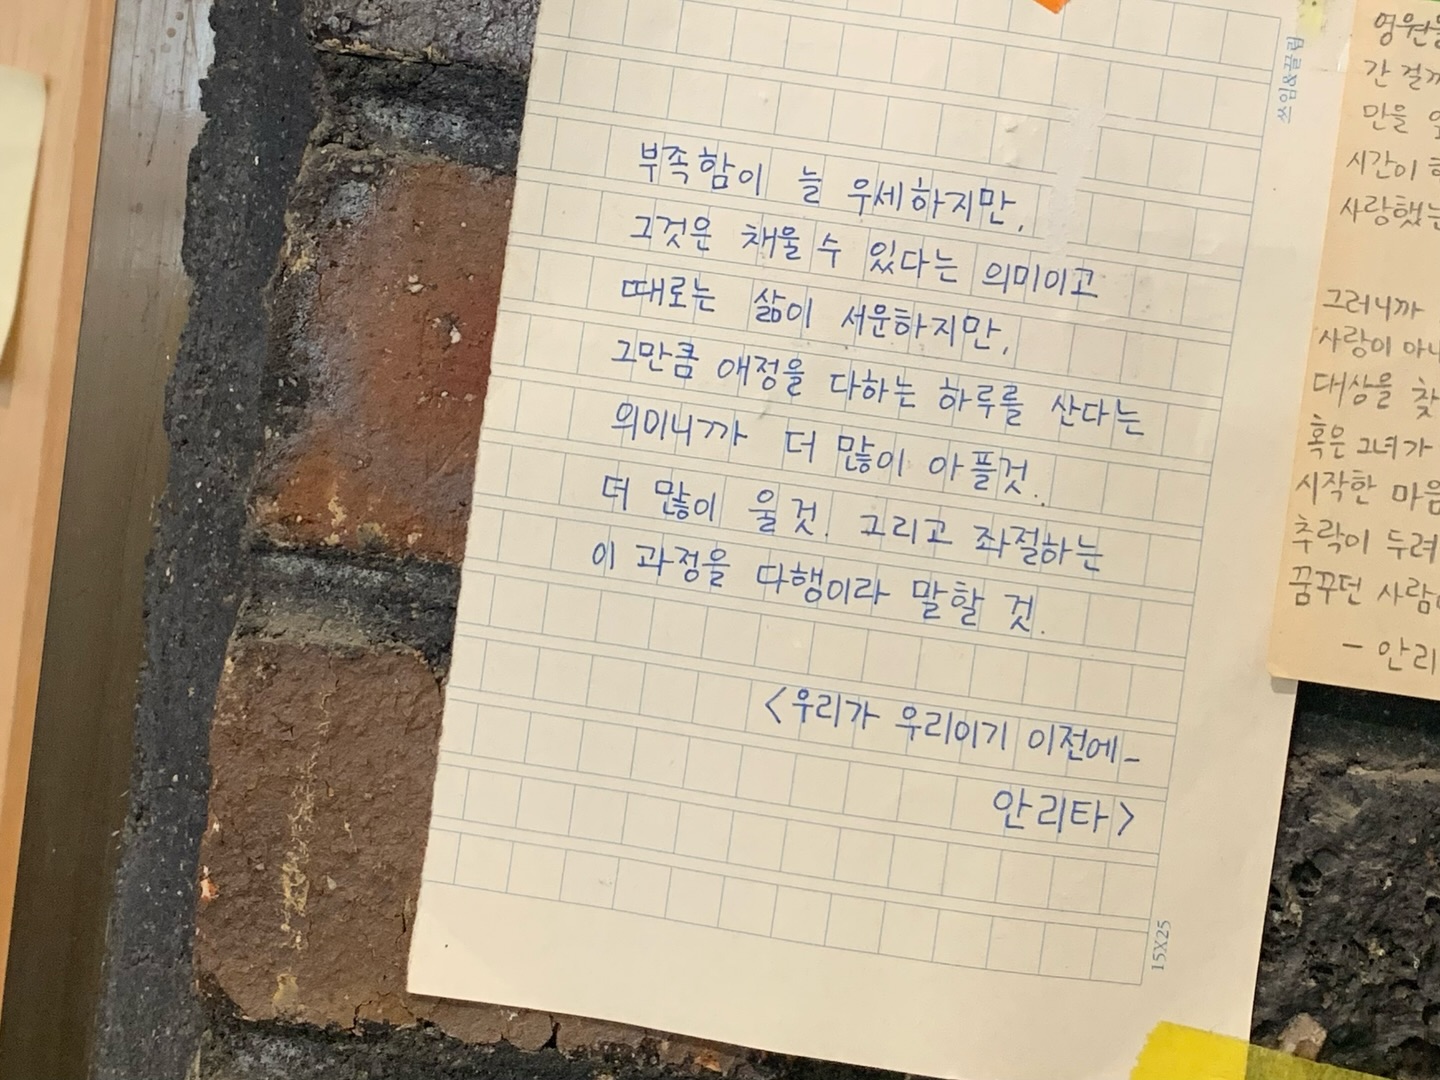 부족함이 늘 우세하지만,
그것은 채울 수 있다는 의미이고
때로는 삶이 서운하지만,
그만큼 애정을 다하는 하루를 산다는
의미니까 더 많이 아플것.
더 많이 울것. 그리고 좌절하는
이 과정을 다행이라 말할 것.
<우리가 우리이기 이전에-
안리타>
쓰임&끌림
15X25
간
만을
시간이
그러니까
사랑이
대상을
혹은 그녀가
시작한
추락이
꿈꾸던